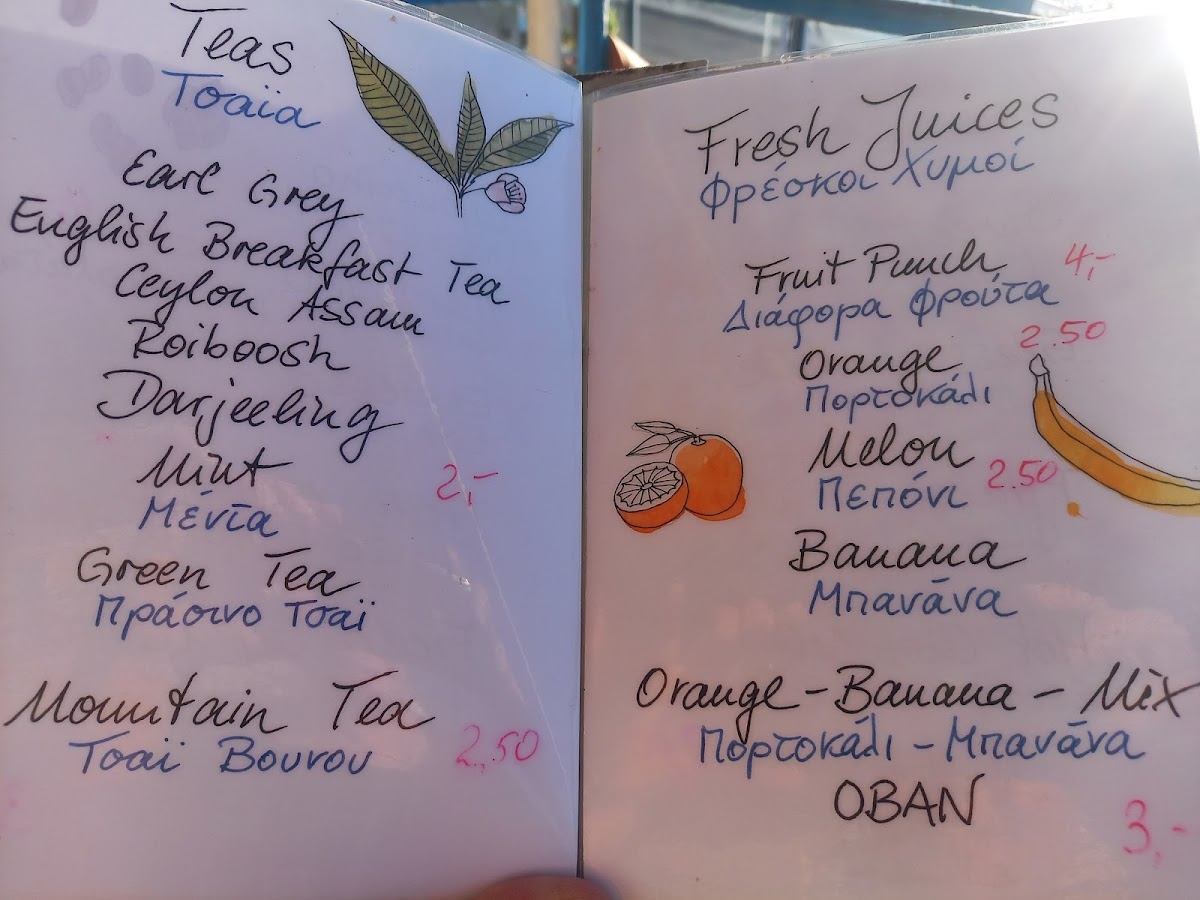 Teas
Τσαϊα
Earl Grey
English Breakfast Tea
Ceylon Assam
Roiboosh
Darjeeling
Mint
2,-
Μέντα
Green Tea
Πράσινο Τσαϊ
Mountain Tea
Τσαϊ Βουνου 2,50
Fresh Juices
Φρέσκοι Χυμοί
Fruit Punch 4,-
Διάφορα φρούτα
2.50
Orange
Πορτοκάλι
Melon
Πεπόνι 2.50
Banana
Μπανάνα
Orange - Banana - Mix
Πορτοκάλι - Μπανάνα
OBAN
3,-